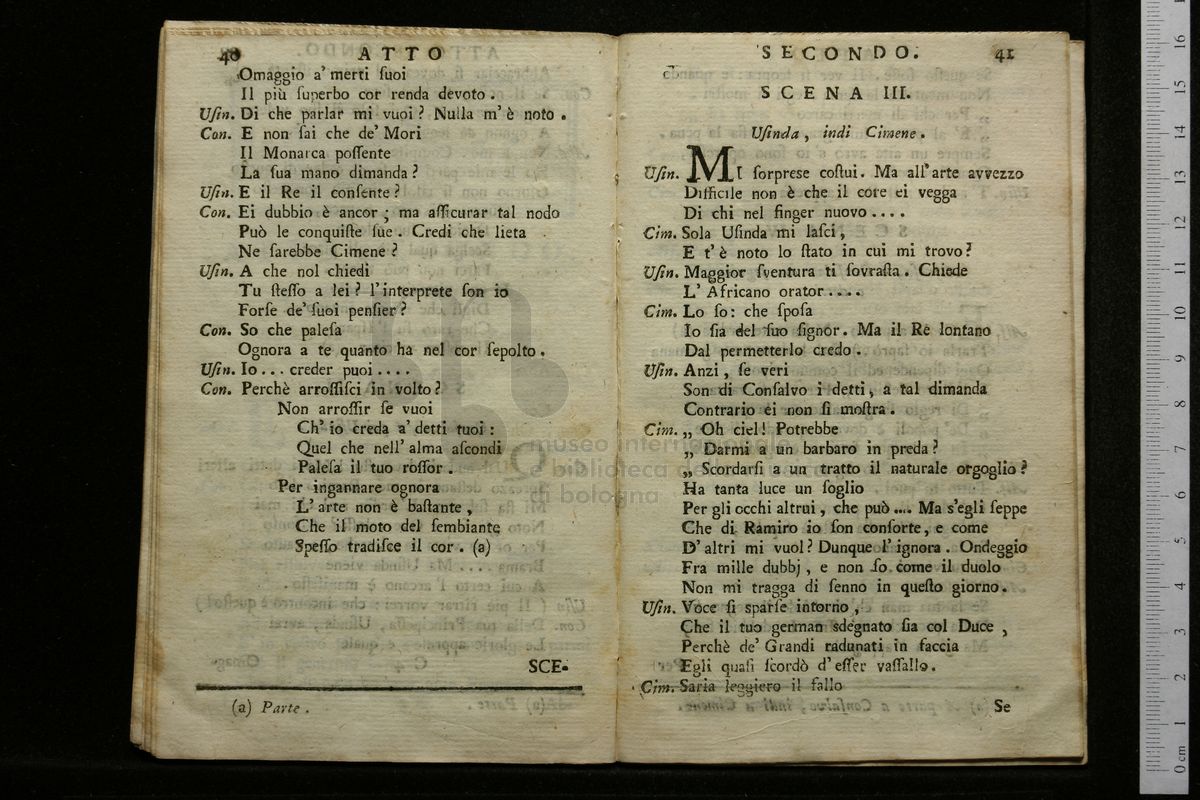 40 ATTO
Omaggio a' merti ſuoi
Il più ſuperbo cor renda devoto.
Uſin. Di che parlar mi vuoi? Nulla m'è noto.
Con. E non ſai che de' Mori
Il Monarca poſſente
La ſua mano dimanda?
Uſin. E il Re il conſente?
Con. Ei dubbio è ancor; ma aſſicurar tal nodo
Può le conquiſte ſue. Credi che lieta
Ne ſarebbe Cimene?
Uſin. A che nol chiedi
Tu ſteſſo a lei? l'interprete ſon io
Forſe de' ſuoi penſier?
Con. So che paleſa
Ognora a te quanto ha nel cor ſepolto.
Uſin. Io... creder puoi....
Con. Perchè arroſſiſci in volto?
Non arroſſir ſe vuoi
Ch' io creda a' detti tuoi:
Quel che nell' alma aſcondi
Paleſa il tuo roſſor.
Per ingannare ognora
L' arte non è baſtante,
Che il moto del ſembiante
Speſſo tradiſce il cor. (a)
SCE-
(a) Parte.
SECONDO. 41
SCENA III.
Uſinda, indi Cimene.
Uſin. MI ſorpreſe coſtui. Ma all'arte avvezzo
Difficile non è che il core ei vegga
Di chi nel finger nuovo....
Cim. Sola Uſinda mi laſci,
E t'è noto lo ſtato in cui mi trovo?
Uſin. Maggior ſventura ti ſovraſta. Chiede
L' Africano orator....
Cim. Lo ſo: che ſpoſa
Io ſia del ſuo ſignor. Ma il Re lontano
Dal permetterlo credo.
Uſin. Anzi, ſe veri
Son di Conſalvo i detti, a tal dimanda
Contrario ei non ſi moſtra.
Cim. „ Oh ciel! Potrebbe
„ Darmi a un barbaro in preda?
„ Scordarſi a un tratto il naturale orgoglio?
Ha tanta luce un ſoglio
Per gli occhi altrui, che può.... Ma s'egli ſeppe
Che di Ramiro io ſon conſorte, e come
D' altri mi vuol? Dunque l'ignora. Ondeggio
Fra mille dubbj, e non ſo come il duolo
Non mi tragga di ſenno in queſto giorno.
Uſin. Voce ſi sparſe intorno,
Che il tuo german sdegnato ſia col Duce,
Perchè de' Grandi radunati in faccia
Egli quaſi ſcordò d'eſſer vaſſallo.
Cim. Saria leggiero il fallo
Se
museo internazionale
biblioteca de
di bologna
16
15
14
13
12
11
10
9
8
7
6
5
4
3
2
1
0 cm